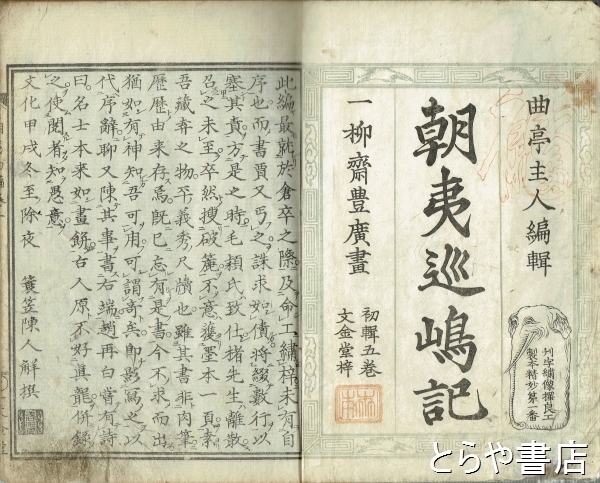 曲亭主人編輯
朝夷巡嶋記
一柳齋豊廣畫
初輯五巻
文金堂梓
列字繍像撰良工
製本精妙第一番
此編最就於倉卒之際及命工繍梓未有自
序也而書賈又丐之誅求如債將綴數行以
塞其責方是之時毛頼氏致仕諸先生離散
召之未至卒然搜破簏不意獲墨本一頁素
吾藏弆之物平義秀尺牘也雖其書非肉筆
歷歷由来存焉既已忘有是書今不求而出
猶如有神知吾可用可謂奇矣即影寫之以
代序辭聊又陳其事書右端趙再白嘗有詩
曰名士本來如畫餅古人原不好真龍併録
之使閲者知愚意
文化甲戌冬至除夜
簑笠陳人解撰
とらや書店